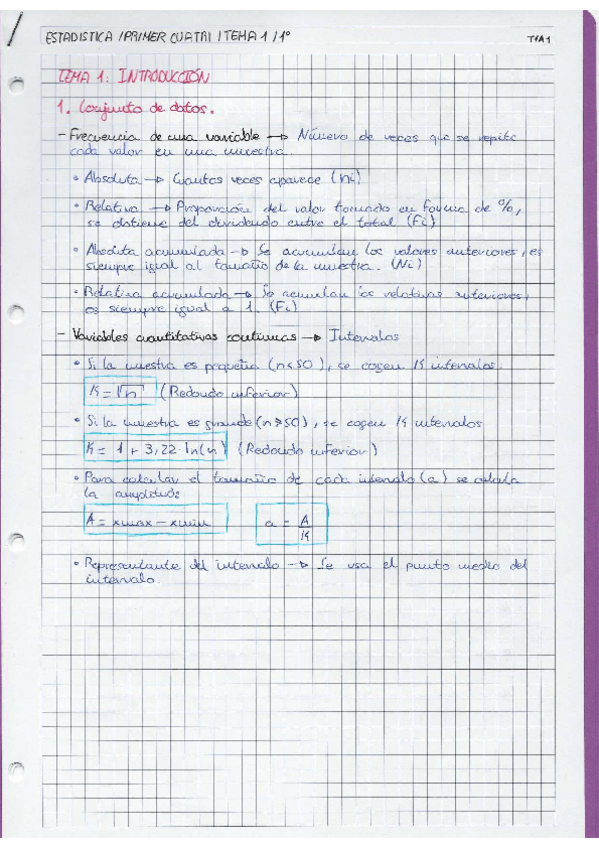 ESTADISTICA / PRIMER CUATRI / TEMA 1 / 1º
TEMA 1
TEMA 1: INTRODUCCIÓN
1. Conjunto de datos.
- Frecuencia de una variable → Número de veces que se repite
cada valor en una muestra.
• Absoluta → Cuantas veces aparece (ni)
• Relativa → Proporción del valor tomado en forma de %,
se obtiene del dividendo entre el total (Fi)
• Absoluta acumulada → Se acumulan los valores anteriores, es
siempre igual al tamaño de la muestra. (Ni)
• Relativa acumulada → Se acumulan las relativas anteriores,
es siempre igual a 1. (Fi)
- Variables cuantitativas continuas → Intervalos
• Si la muestra es pequeña (n<50), se cogen K intervalos.
K = √n (Redondo inferior)
• Si la muestra es grande (n≥50), se cogen K intervalos
K = 1 + 3,22·ln(n) (Redondo inferior)
• Para calcular el tamaño de cada intervalo (a) se calcula
la amplitud:
A = xmax - xmin a = A/K
• Representante del intervalo → Se usa el punto medio del
intervalo.